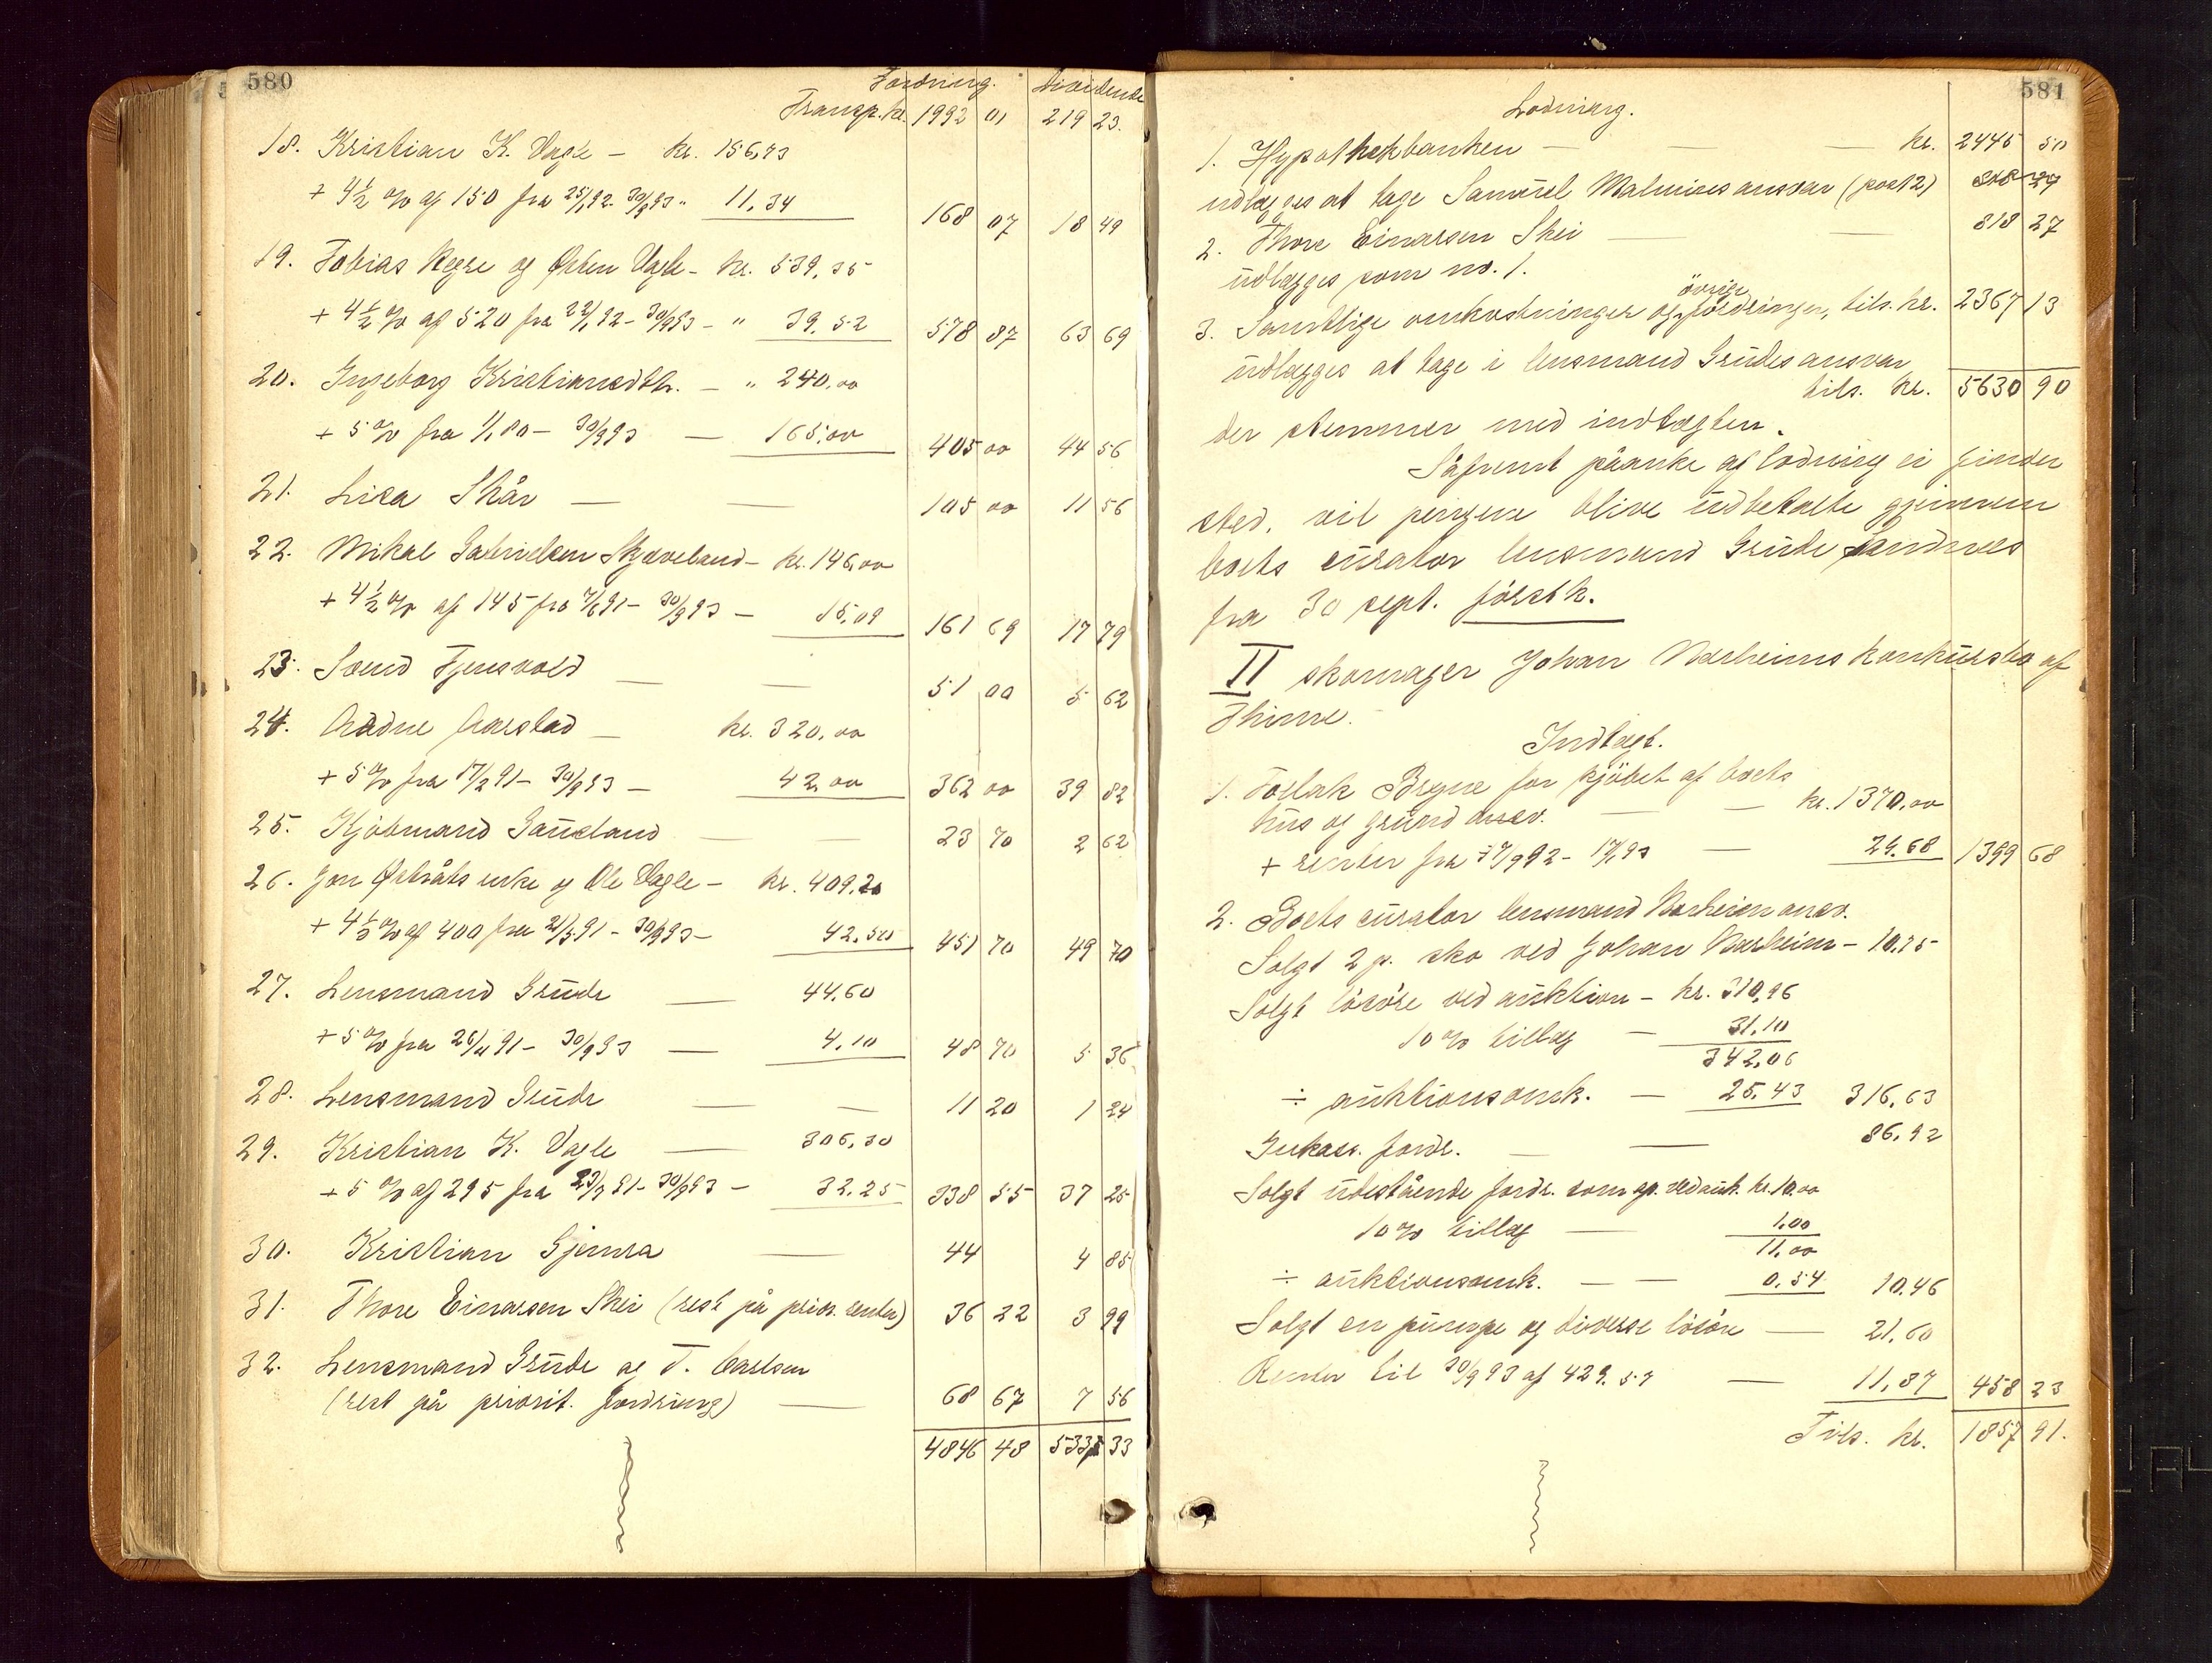 580
Fordring. Dividende
Transp. kr. 1992 01 219 23.
18. Kristian K. Vagle – kr. 156,73
+ 4½ % af 150 fra 25/1 92 - 30/9 93 " 11,34 168 07 18 49
19. Tobias Regre og Østen Vagle – kr. 539,35
+ 4½ % af 520 fra 22/1 92 - 30/9 93 – " 39,52 578 87 63 69
20. Ingeborg Kristiansdtr. – " 240,00
+ 5 % fra 1/1 80 – 30/9 93 — 165,00 405 00 44 56
21. Lisa Skår — — 105 00 11 56
22. Mikal Gabrielsen Skjæveland – kr. 146,00
+ 4½ % af 145 fra 7/6 91 – 30/9 93 – 15,09 161 69 17 79
23. Svend Tjensvold — — 51 00 5 62
24. Aadne Aarstad — kr. 320,00
+ 5 % fra 17/2 91 – 30/9 93 – 42,00 362 00 39 82
25. Kjøbmand Sandland — — 23 70 2 62
26. Jon Østråts enke og Ole Vagle – kr. 409,20
+ 4½ % af 400 fra 21/5 91 – 30/9 93 – 42,50 451 70 49 70
27. Lensmand Grude — 44,60
+ 5 % fra 26/11 91 – 30/9 93 — 4,10 48 70 5 36
28. Lensmand Grude — — 11 20 1 24
29. Kristian K. Vagle — 306,30
+ 5 % af 295 fra 23/7 91 - 30/9 93 – 32,25 338 55 37 25
30. Kristian Gjemra — 44 4 85
31. Thore Einarsen Skei (rest på prior. renter) 36 22 3 99
32. Lensmand Grude og T. Carlsen
(rest på priorit. fordring) — 68 67 7 56
4846 48 533 33
581
Lodning.
1. Hypothekbanken — — — kr. 2445 50
udlægges at tage Samuel Malmins ansvar (post 2)
2. Thore Einarsen Skei — — 818 27
udlægges som no. 1.
3. Samtlige omkostninger og øvrige fordringer, tils. kr. 2367 13
udlægges at tage i lensmand Grudes ansvar
tils. kr. 5630 90
der stemmer med indtægten.
Såfremt påanke af lodning ei finder
sted, vil pengene blive udbetalte gjennem
boets curator lensmand Grude Sandnes
fra 30 sept. førstk.
II skomager Johan Nærheims konkursbo af
Thime.
Indtægt.
1. Tollak Bryne for kjøbet af boets
hus og grund ansv. — — kr. 1370,00
+ renter fra 27/9 92 - 17/1 93 — 29.68 1399 68
2. Boets curator lensmand Nærheim ansv.
Solgt 2 p. sko ved Johan Nærheim – 10,75
Solgt løsøre ved auktion – kr. 310,96
10 % tillæg — 31,10
342,06
÷ auktionsomk. — 25,43 316,63
Inkass. fordr. — — 86,92
Solgt udestående fordr. som op. ved auk. kr. 10.00
10 % tillæg — 1,00
11,00
÷ auktionsomk. — — 0,54 10,46
Solgt en pumpe og diverse løsøre — 21,60
Renter til 30/9 93 af 429.57 — 11,87 458 23
Tils. kr. 1857 91.